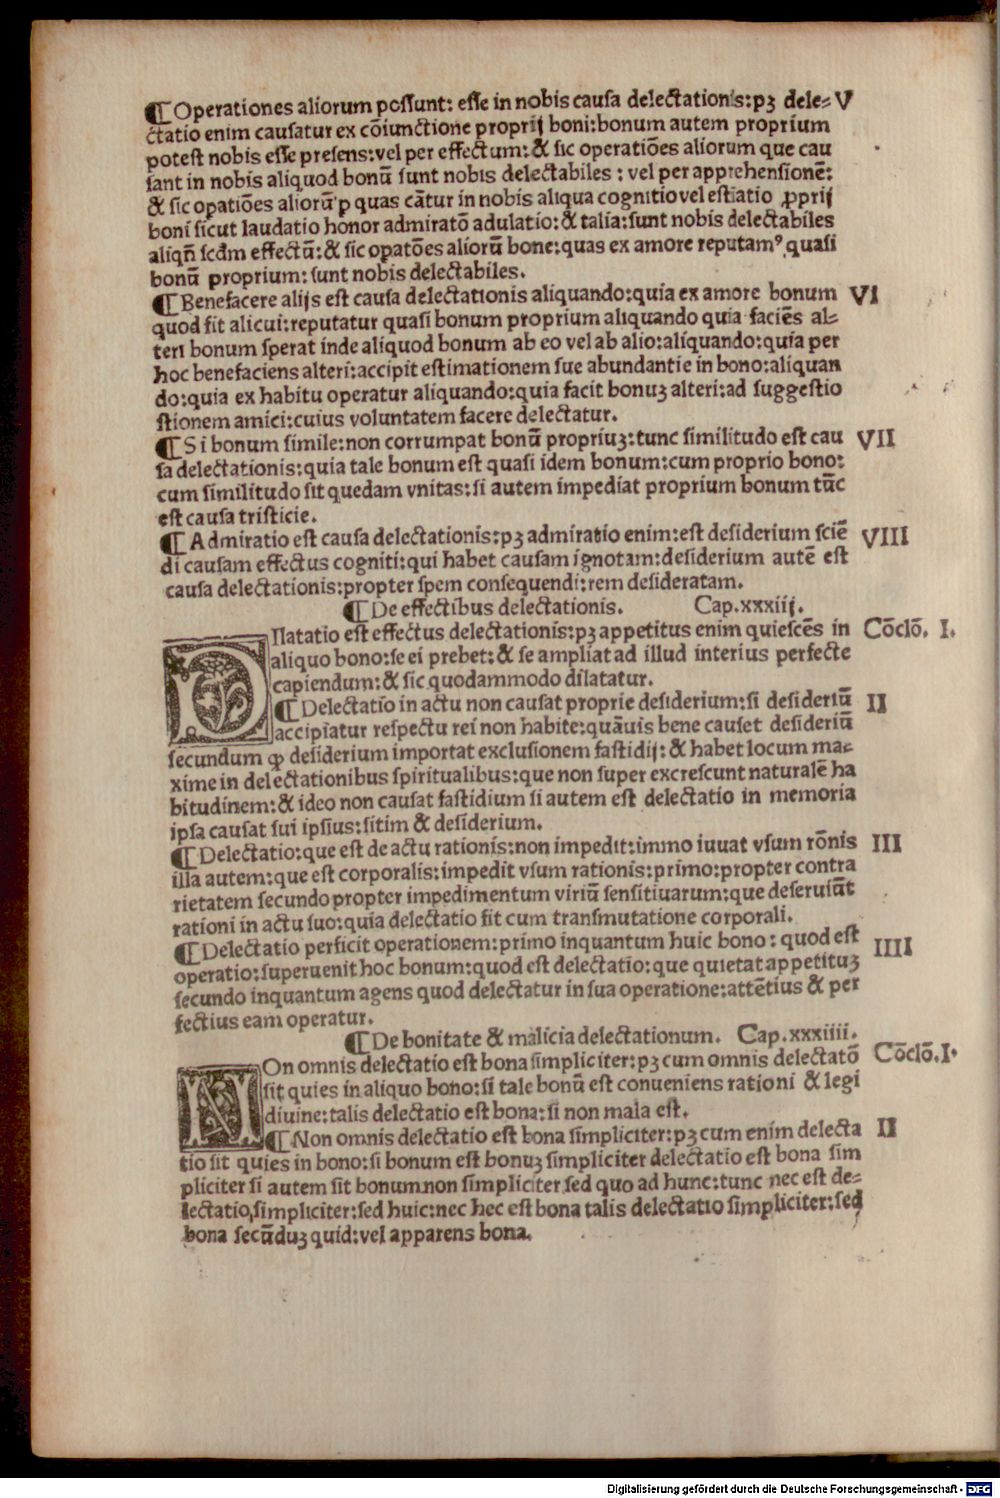 ¶ Operationes aliorum possunt: esse in nobis causa delectationis: pꝫ dele- V
ctatio enim causatur ex cõiunctione proprij boni: bonum autem proprium
potest nobis esse presens: vel per effectum: & sic operatiões aliorum que cau
sant in nobis aliquod bonũ sunt nobis delectabiles : vel per apprehensionẽ:
& sic opatiões aliorũ p quas cãtur in nobis aliqua cognitio vel estiatio ꝓprij
boni sicut laudatio honor admiratõ adulatio: & talia: sunt nobis delectabiles
aliqñ scdm effectũ: & sic opatões aliorũ bone: quas ex amore reputamꝰ quasi
bonũ proprium: sunt nobis delectabiles.
¶ Benefacere alijs est causa delectationis aliquando: quia ex amore bonum VI
quod fit alicui: reputatur quasi bonum proprium aliquando quia faciẽs al-
teri bonum sperat inde aliquod bonum ab eo vel ab alio: aliquando: quia per
hoc benefaciens alteri: accipit estimationem sue abundantie in bono: aliquan
do: quia ex habitu operatur aliquando: quia facit bonuꝫ alteri: ad suggestio
stionem amici: cuius voluntatem facere delectatur.
¶ Si bonum simile: non corrumpat bonũ propriuꝫ: tunc similitudo est cau VII
sa delectationis: quia tale bonum est quasi idem bonum: cum proprio bono:
cum similitudo sit quedam vnitas: si autem impediat proprium bonum tũc
est causa tristicie.
¶ Admiratio est causa delectationis: pꝫ admiratio enim: est desiderium sciẽ VIII
di causam effectus cogniti: qui habet causam ignotam: desiderium autẽ est
causa delectationis: propter spem consequendi: rem desideratam.
¶ De effectibus delectationis. Cap. xxxiij.
DIlatatio est effectus delectationis: pꝫ appetitus enim quiescẽs in Cõclõ. I.
aliquo bono: se ei prebet: & se ampliat ad illud interius perfecte
capiendum: & sic quodammodo dilatatur.
¶ Delectatio in actu non causat proprie desiderium: si desideriũ II
accipiatur respectu rei non habite: quãuis bene causet desideriũ
secundum ꝙ desiderium importat exclusionem fastidij: & habet locum ma-
xime in delectationibus spiritualibus: que non super excrescunt naturalẽ ha
bitudinem: & ideo non causat fastidium si autem est delectatio in memoria
ipsa causat sui ipsius: sitim & desiderium.
¶ Delectatio: que est de actu rationis: non impedit: immo iuuat vsum rõnis III
illa autem: que est corporalis: impedit vsum rationis: primo: propter contra
rietatem secundo propter impedimentum viriũ sensitiuarum: que deseruiũt
rationi in actu suo: quia delectatio fit cum transmutatione corporali.
¶ Delectatio perficit operationem: primo inquantum huic bono : quod est IIII
operatio: superuenit hoc bonum: quod est delectatio: que quietat appetituꝫ
secundo inquantum agens quod delectatur in sua operatione: attẽtius & per
fectius eam operatur.
¶ De bonitate & malicia delectationum. Cap. xxxiiii.
NOn omnis delectatio est bona simpliciter: pꝫ cum omnis delectatõ Cõclõ. I.
sit quies in aliquo bono: si tale bonũ est conueniens rationi & legi
diuine: talis delectatio est bona: si non mala est.
¶ Non omnis delectatio est bona simpliciter: pꝫ cum enim delecta II
tio sit quies in bono: si bonum est bonuꝫ simpliciter delectatio est bona sim
pliciter si autem sit bonum non simpliciter sed quo ad hunc: tunc nec est de-
lectatio, simpliciter: sed huic: nec hec est bona talis delectatio simpliciter: sed
bona secũduꝫ quid: vel apparens bona.
Digitalisierung gefördert durch die Deutsche Forschungsgemeinschaft - DFG